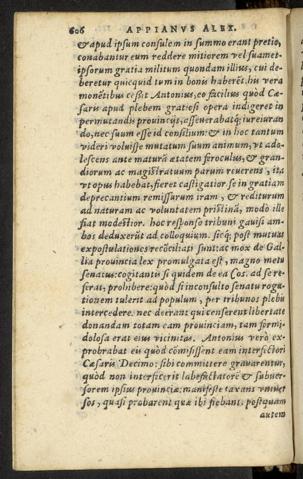 606 APPIANVS ALEX.
& apud ipsum consulem in summo erant pretio,
conabantur eum reddere mitiorem vel suamet-
ipsorum gratia militum quondam illius, cui de-
beretur quicquid tum in bonis haberēt. his vera
monētibus cessit Antonius, eo facilius quòd Cæ-
saris apud plebem gratiosi opera indigeret in
permutandis prouincijs, asseuerabatq́; iureiuran
do, nec suum esse id consilium: & in hoc tantum
videri voluisse mutatum suum animum, vt ado-
lescens ante maturā ætatem feroculus, & gran-
diorum ac magistratuum parum reuerens, ita
vt opus habebat, fieret castigatior se in gratiam
deprecantium remissurum iram, & rediturum
ad naturam ac voluntatem pristinā, modò ille
fiat modestior. hoc responso tribuni gauisi am-
bos deduxerūt ad colloquium. sicq́; post mutuas
expostulationes recōciliati sunt: ac mox de Gal-
lia prouincia lex promulgata est, magno metu
senatus: cogitantis si quidem de ea Cos. ad se re-
ferat, prohibere: quòd si inconsulto senatu roga-
tionem tulerit ad populum, per tribunos plebis
intercedere. nec deerant qui censerent libertate
donandam totam eam prouinciam, tam formi-
dolosa erat eius vicinitas. Antonius verò ex-
probrabat eis quòd cōmisissent eam interfectori
Cæsaris Decimo: sibi committere grauarentur,
quòd non interfecerit labefactatorē & subuer-
sorem ipsius prouinciæ: manifestè taxans vniuer
sos, quasi probarent quæ ibi fiebant. postquam
autem